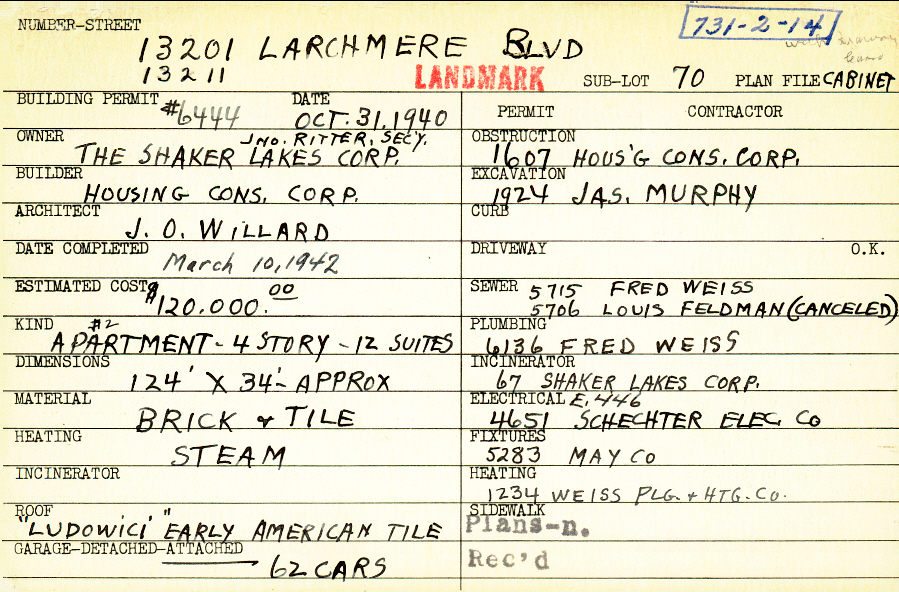 NUMBER-STREET
731-2-14
13201 LARCHMERE BLVD
13211
LANDMARK
SUB-LOT 70 PLAN FILE CABINET
BUILDING PERMIT #6444 DATE OCT. 31, 1940
OWNER JNO. RITTER, SECY.
THE SHAKER LAKES CORP.
BUILDER
HOUSING CONS. CORP.
ARCHITECT
J. O. WILLARD
DATE COMPLETED
March 10, 1942
ESTIMATED COST
$120.000.00
KIND #2
APARTMENT - 4 STORY - 12 SUITES
DIMENSIONS
124' X 34'- APPROX
MATERIAL
BRICK & TILE
HEATING
STEAM
INCINERATOR
ROOF
"LUDOWICI" EARLY AMERICAN TILE
GARAGE-DETACHED-ATTACHED
62 CARS
PERMIT CONTRACTOR
OBSTRUCTION
1607 HOUS'G CONS. CORP.
EXCAVATION
1924 JAS. MURPHY
CURB
DRIVEWAY O.K.
SEWER 5715 FRED WEISS
5706 LOUIS FELDMAN (CANCELED)
PLUMBING
6136 FRED WEISS
INCINERATOR
67 SHAKER LAKES CORP.
ELECTRICAL E. 446
4651 SCHECHTER ELEC. CO
FIXTURES
5283 MAY CO
HEATING
1234 WEISS PLG. & HTG. CO.
SIDEWALK
Plans-n.
Rec'd